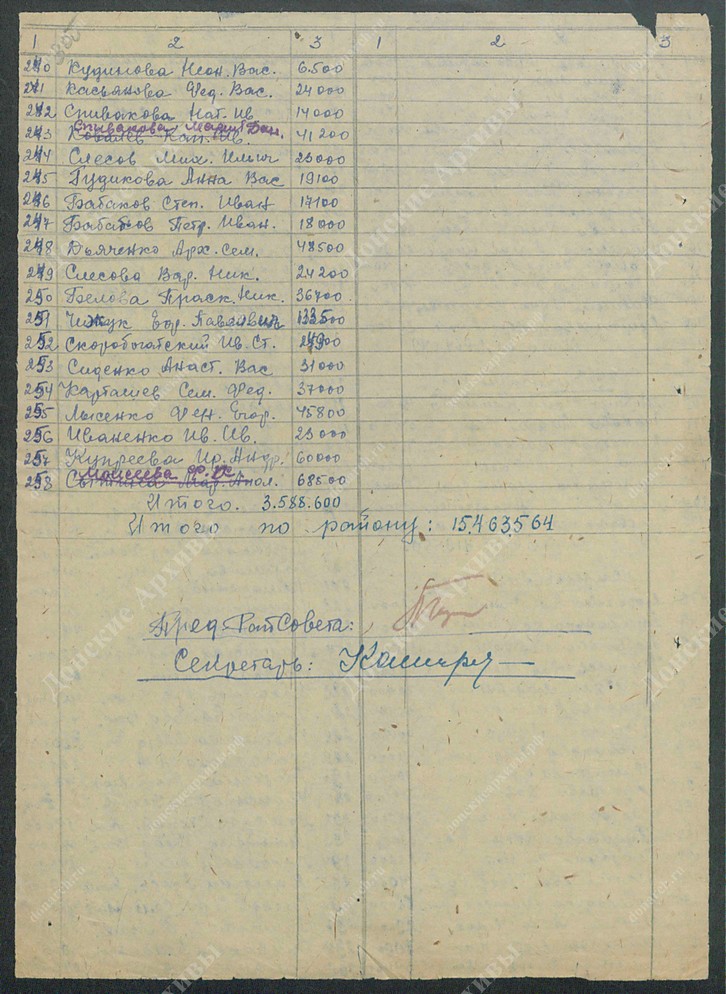 1 2 3 1 2 3
240 Кудинова Неон. Вас. 6.500
241 Касьянова Фед. Вас. 24000
242 Спивакова Нат. Ив 14000
Спивакова Мария Дан.
243 Ковалев Кап. Ив. 41200
244 Слесов Мих. Ильич 23000
245 Гудикова Анна Вас 19100
246 Бабаков Степ. Иван 17100
247 Бабаков Петр. Иван. 18000
248 Дьяченко Арх. Сем. 48500
249 Слесова Вар. Ник. 24200
250 Белова Праск. Ник. 36700
251 Чижук Егор. Павлович 133500
252 Скоробогатский Ив. Ст.
253 Сиденко Анаст. Вас 31000
254 Карташев Сем. Фед. 37000
255 Лысенко Фен. Егор. 45800
256 Иваненко Ив. Ив. 23000
257 Купреева Ир. Андр. 60000
Моисеева Ф.
258 68500
Итого. 3.588.600
Итого по району: 15.463.564
Пред. РайСовета:
Секретарь:
Донские Архивы
донскиеархивы.рф
donarch.ru